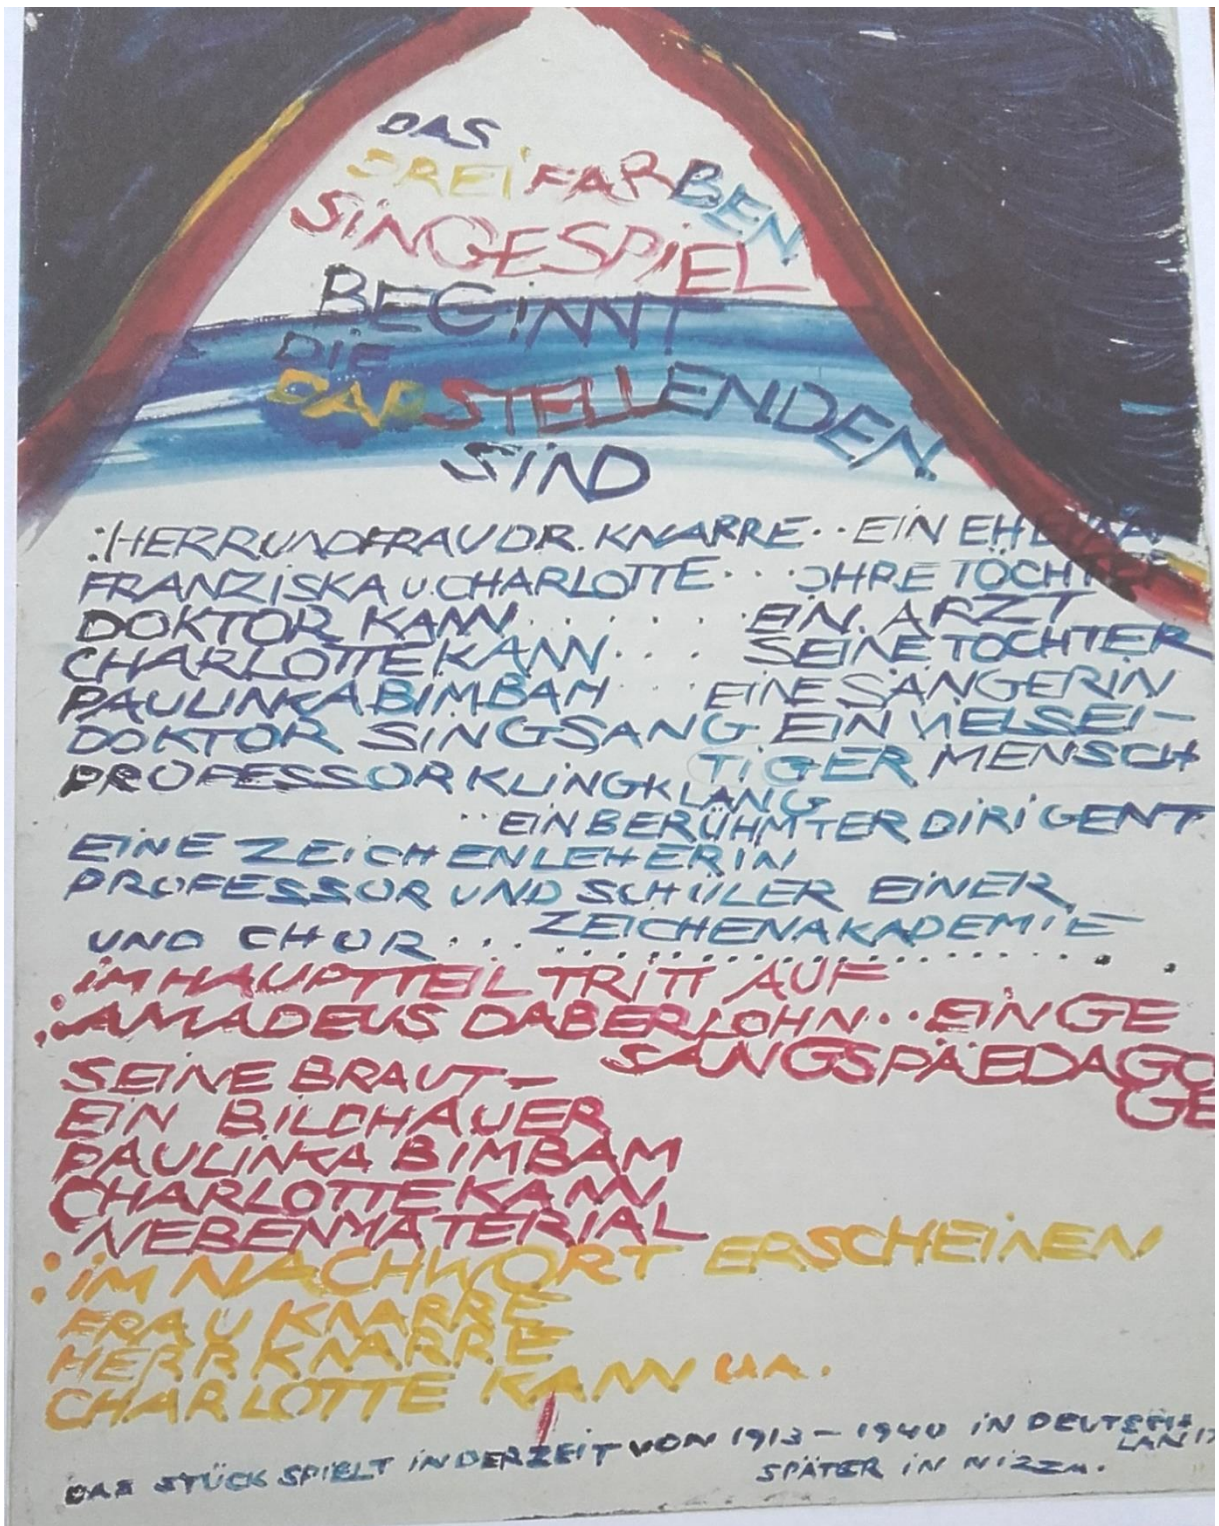 DAS
DREIFARBEN
SINGESPIEL
BEGINNT
DIE
DARSTELLENDEN
SIND
:HERR UND FRAU DR. KNARRE.. EIN
FRANZISKA U. CHARLOTTE... IHRE TÖCHTER
DOKTOR KANN....... EIN ARZT
CHARLOTTE KANN.... SEINE TOCHTER
PAULINKA BIMBAM.... EINE SÄNGERIN
DOKTOR SINGSANG EIN VIELSEI-
TIGER MENSCH
PROFESSOR KLINGKLANG
..EIN BERÜHMTER DIRIGENT
EINE ZEICHENLEHERIN
PROFESSOR UND SCHÜLER EINER
ZEICHENAKADEMIE
UND CHOR...................
:IM HAUPTTEIL TRITT AUF
:AMADEUS DABERLOHN.. EIN GE
SANGSPÄEDAGO
GE
SEINE BRAUT-
EIN BILDHAUER
PAULINKA BIMBAM
CHARLOTTE KANN
NEBENMATERIAL
:IM NACHWORT ERSCHEINEN
FRAU KNARRE
HERR KNARRE
CHARLOTTE KANN U.A.
DAS STÜCK SPIELT IN DER ZEIT VON 1913-1940 IN DEUTSCH
LAND
SPÄTER IN NIZZA.